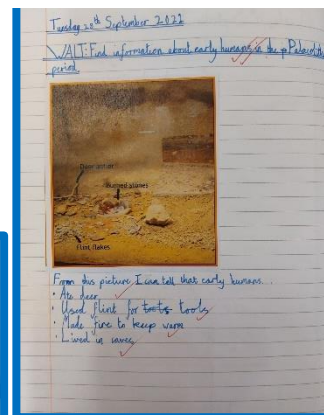 Tuesday 20th September 2022
WALT: Find information about early humans in the Palaeolithic
period
Deer antler
Burned stones
Flint flakes
From this picture I can tell that early humans...
• Ate deer
• Used flint for toots tools
• Made fire to keep warm
• Lived in caves